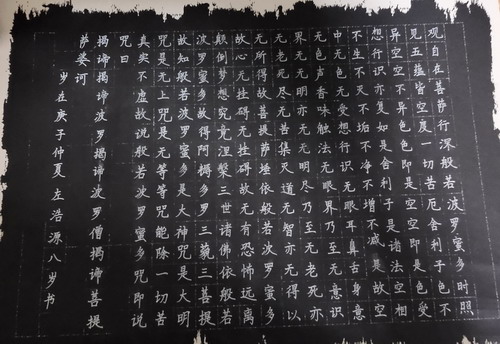 观自在菩萨行深般若波罗蜜多时照
见五蕴皆空度一切苦厄舍利子色不
异空空不异色色即是空空即是色受
想行识亦复如是舍利子是诸法空相
不生不灭不垢不净不增不减是故空
中无色无受想行识无眼耳鼻舌身意
无色声香味触法无眼界乃至无意识
界无无明亦无无明尽乃至无老死亦
无老死尽无苦集灭道无智亦无得以
无所得故菩提萨埵依般若波罗蜜多
故心无挂碍无挂碍故无有恐怖远离
颠倒梦想究竟涅槃三世诸佛依般若
波罗蜜多故得阿耨多罗三藐三菩提
故知般若波罗蜜多是大神咒是大明
咒是无上咒是无等等咒能除一切苦
真实不虚故说般若波罗蜜多咒即说
咒曰
揭谛揭谛波罗揭谛波罗僧揭谛菩提
萨婆诃
岁在庚子仲夏左浩源八岁书